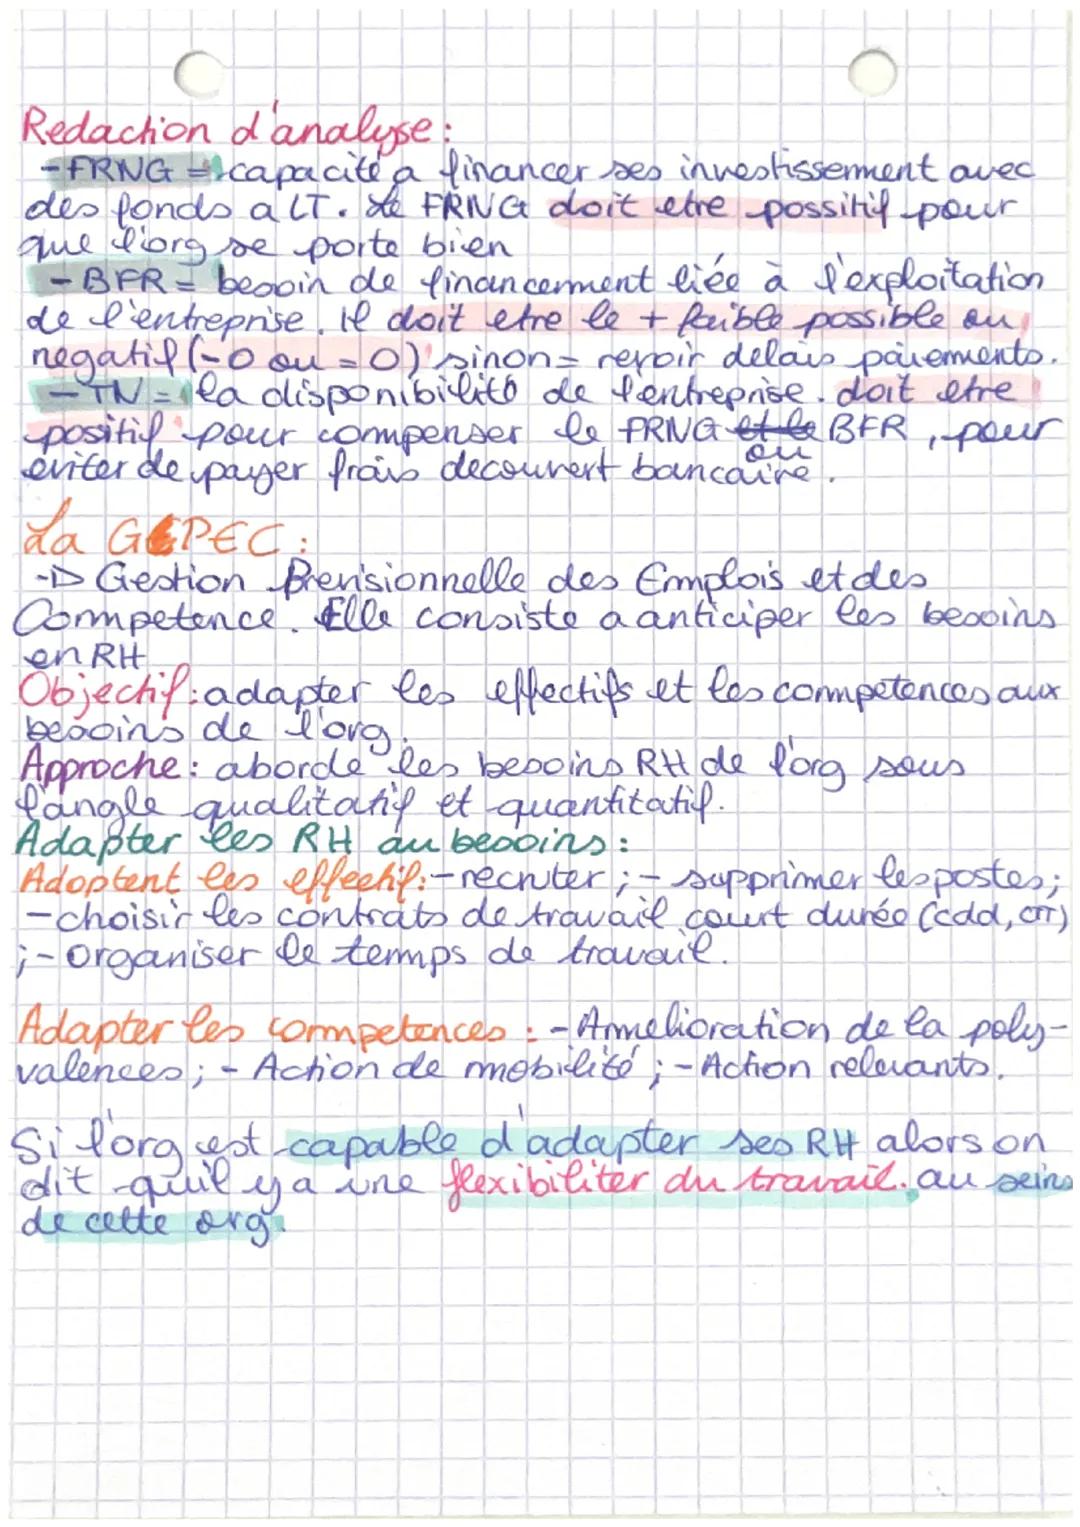 Redaction d'analyse :
- FRNG = capacité a financer ses investissement avec
des fonds a LT. Le FRNG doit etre possitif pour
que l'org se porte bien
- BFR = besoin de financenment liée à l'exploitation
de l'entreprise. il doit etre le + faible possible ou
negatif (-0 ou = 0) sinon = revoir delais paiements.
- TN = la disponibilité de l'entreprise. doit etre
positif pour compenser le FRNG et le BFR, pour
ou
eviter de payer frais decouvert bancaire.
La GPEC :
-> Gestion Previsionnelle des Emplois et des
Competence. Elle consiste a anticiper les besoins
en RH
Objectif : adapter les effectifs et les competences aux
besoins de l'org.
Approche : aborde les besoins RH de l'org sous
l'angle qualitatif et quantitatif.
Adapter les RH au besoins :
Adoptent les effectif : - recruter ; - supprimer les postes ;
- choisir les contrats de travail court durée (cdd, CTT)
; - organiser le temps de travail.
Adapter les competences : - Amelioration de la poly-
valences ; - Action de mobilité ; - Action relevants.
Si l'org est capable d'adapter ses RH alors on
dit quil y a une flexibiliter du travail. au seins
de cette org.